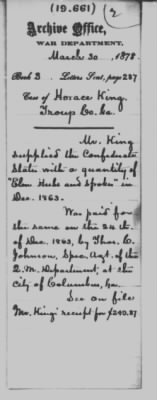 (19.661)
2
Archive Office,
WAR DEPARTMENT,
March 30, 1878.
Book 3. Letters Sent, page 287
Case of Horace King,
Troup Co. Ga.
Mr. King
supplied the Confederate
States with a quantity of
"Elm Hubs and Spokes" in
Dec. 1863.
Was paid for
the same on the 24th
of Dec. 1863, by Thos. C.
Johnson, Spec. Agt. of the
Q. M. Department, at the
City of Columbus, Ga.
See on file
Mr. King's receipt for $240.87